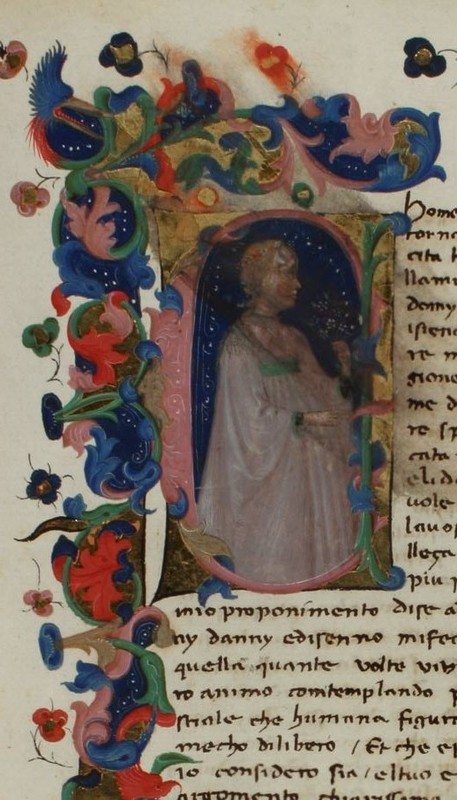 home
torna
cita h
llami
danny
istenu
re m
gione
me d
re sp
cata
elida
uole
lauos
llega
piu p
mio proponimento dise a
ny danny edisenno mifec
quella quante volte vin
ro animo comtemplando p
stiale che humana figura
mecho dilibero / Et che ep
io considero sia / eltuo e
argomento chiarissimo